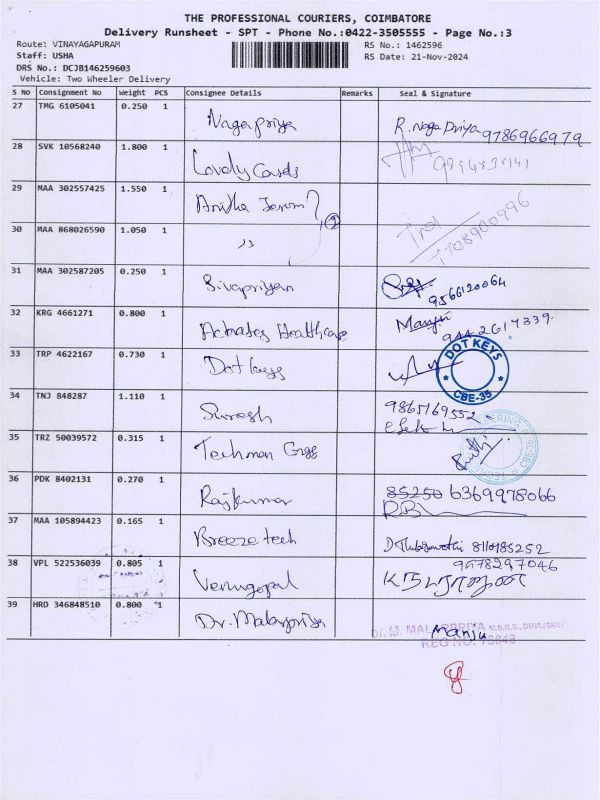 THE PROFESSIONAL COURIERS, COIMBATORE
Delivery Runsheet - SPT - Phone No.:0422-3505555 - Page No.:3
Route: VINAYAGAPURAM
RS No.: 1462596
Staff: USHA
RS Date: 21-Nov-2024
DRS No.: DCJB146259603
Vehicle: Two Wheeler Delivery
S No Consignment No Weight PCS Consignee Details Remarks Seal & Signature
27 TMG 6105041 0.250 1 Nagapriya R. Naga Priya 9786966979
28 SVK 10568240 1.800 1 Lovely Cards
29 MAA 302557425 1.550 1 Anitha
30 MAA 868026590 1.050 1 ,, 2
31 MAA 302587205 0.250 1 Sivapriyan 9566120064
32 KRG 4661271 0.800 1 Healthcare Manju
33 TRP 4622167 0.730 1 Dot keys DOT KEYS CBE-35
34 TNJ 848287 1.110 1 Suresh 9865169552
35 TRZ 50039572 0.315 1 Techman Engg CBE-35
36 PDK 8402131 0.270 1 Rajkumar 85250 6369978066
37 MAA 105894423 0.165 1 Breeze tech 8110185252
38 VPL 522536039 0.805 1 Venugopal 9578297046
39 HRD 346848510 0.800 1 Dr. Malarpriya Manju